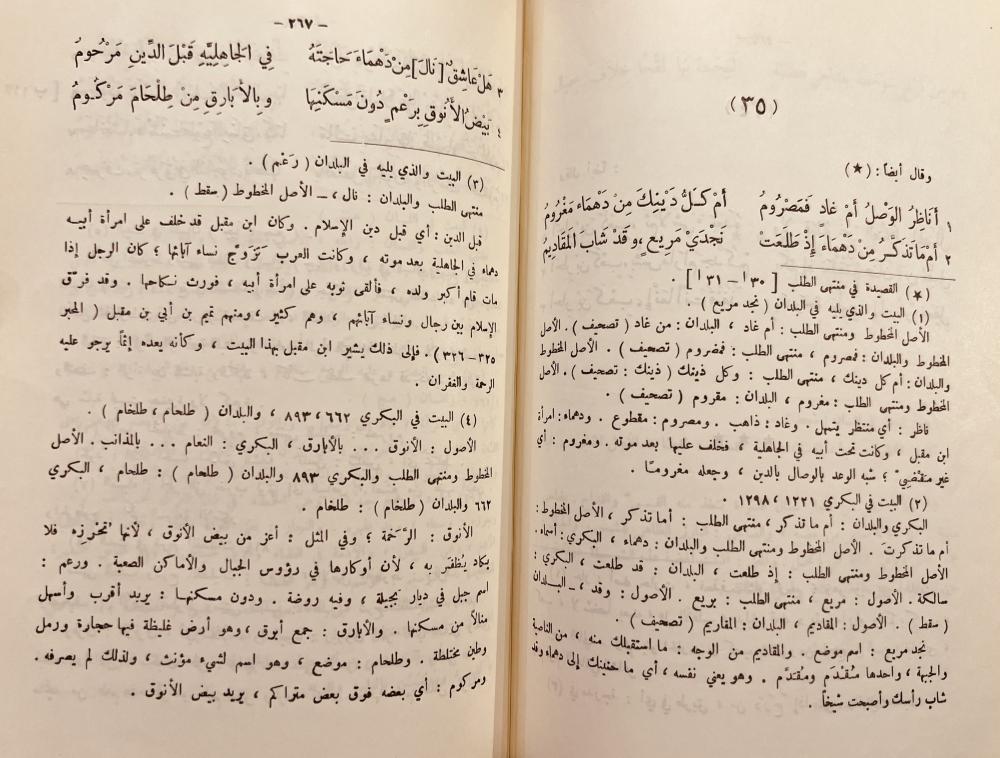 (٣٥)
وقال أيضاً : (★)
١ أَنَاظِرُ الوَصْلُ أَمْ غَادٍ فَمَصْرُومُ أَمْ كُلُّ دَيْنِكَ مِنْ دَهْمَاءَ مَغْرُومُ
٢ أَمْ مَا تَذَكَّرُ مِنْ دَهْمَاءَ إِذْ طَلَعَتْ نَجْدَيْ مَرِيعٍ ، وَقَدْ شَابَ المَقَادِيمُ
(★) القصيدة في منتهى الطلب [ ٣٠ أ – ٣١ أ ] .
(١) البيت والذي يليه في البلدان ( نجد مريع ) .
الأصل المخطوط ومنتهى الطلب : أم غاد ، البلدان : من غاد ( تصحيف ) . الأصل
المخطوط والبلدان : فمصروم ، منتهى الطلب : فمضروم ( تصحيف ) . الأصل المخطوط
والبلدان : أم كل دينك ، منتهى الطلب : وكل ذينك ( ذينك : تصحيف ) . الأصل
المخطوط ومنتهى الطلب : مغروم ، البلدان : مقروم ( تصحيف ) .
ناظر : أي منتظر يتمهل . وغاد : ذاهب . ومصروم : مقطوع . ودهماء : امرأة
ابن مقبل ، وكانت تحت أبيه في الجاهلية ، فخلف عليها بعد موته . ومغروم : أي
غير متقضي ؛ شبه الوعد بالوصال بالدين ، وجعله مغروماً .
(٢) البيت في البكري ١٢٢١ ، ١٢٩٨ .
البكري والبلدان : أم ما تذكر ، منتهى الطلب : أما تذكر ، الأصل المخطوط :
أم ما تذكرت . الأصل المخطوط ومنتهى الطلب والبلدان : دهماء ، البكري : أسماء .
الأصل المخطوط ومنتهى الطلب : إذ طلعت ، البلدان : قد طلعت ، البكري :
سالكة . الأصول : مريع ، منتهى الطلب : بريع . الأصول : وقد ، – البلدان
( سقط ) . الأصول : المقاديم ، البلدان : المقاريم ( تصحيف ) .
نجد مريع : اسم موضع . والمقاديم من الوجه : ما استقبلك منه ، من الناصية
والجبهة ، واحدها مُقْدَم ومُقَدَّم . وهو يعني نفسه ، أي ما حنينك إلى دهماء وقد
شاب رأسك وأصبحت شيخاً .
– ٢٦٧ –
٣ هَلْ عَاشِقٌ [ نَالَ ] مِنْ دَهْمَاءَ حَاجَتَهُ فِي الجَاهِلِيَّةِ قَبْلَ الدِّينِ مَرْحُومُ
٤ بَيْضُ الأَنُوقِ بِرَعْمٍ دُونَ مَسْكَنِهَا وبِالأَبَارِقِ مِنْ طِلْحَامَ مَرْكُومُ
(٣) البيت والذي يليه في البلدان ( رَعْم ) .
منتهى الطلب والبلدان : نال ، – الأصل المخطوط ( سقط ) .
قبل الدين : أي قبل دين الإسلام . وكان ابن مقبل قد خلف على امرأة أبيه
دهماء في الجاهلية بعد موته ، وكانت العرب تَزَوَّج نساء آبائها ؛ كان الرجل إذا
مات قام أكبر ولده ، فألقى ثوبه على امرأة أبيه ، فورث نكاحها . وقد فرّق
الإسلام بين رجال ونساء آبائهم ، وهم كثير ، ومنهم تميم بن أبي بن مقبل ( المحبر
٣٢٥–٣٢٦ ) . فإلى ذلك يشير ابن مقبل بهذا البيت ، وكأنه يعده إثماً يرجو عليه
الرحمة والغفران .
(٤) البيت في البكري ٦٦٢ ، ٨٩٣ ، والبلدان ( طلحام ، طلخام ) .
الأصول : الأنوق ... بالأبارق ، البكري : النعام ... بالمذانب . الأصل
المخطوط ومنتهى الطلب والبكري ٨٩٣ والبلدان ( طلحام ) : طلحام ، البكري
٦٦٢ والبلدان ( طلخام ) : طلخام .
الأنوق : الرَّخَمة ؛ وفي المثل : أعز من بيض الأنوق ، لأنها تحرزه فلا
يكاد يُظفَر به ، لأن أوكارها في رؤوس الجبال والأماكن الصعبة . ورعم :
اسم جبل في ديار بجيلة ، وفيه روضة . ودون مسكنها : يريد أقرب وأسهل
منالاً من مسكنها . والأبارق : جمع أبرق ، وهو أرض غليظة فيها حجارة ورمل
وطين مختلطة . وطلحام : موضع ، وهو اسم لشيء مؤنث ، ولذلك لم يصرفه .
ومركوم : أي بعضه فوق بعض متراكم ، يريد بيض الأنوق .